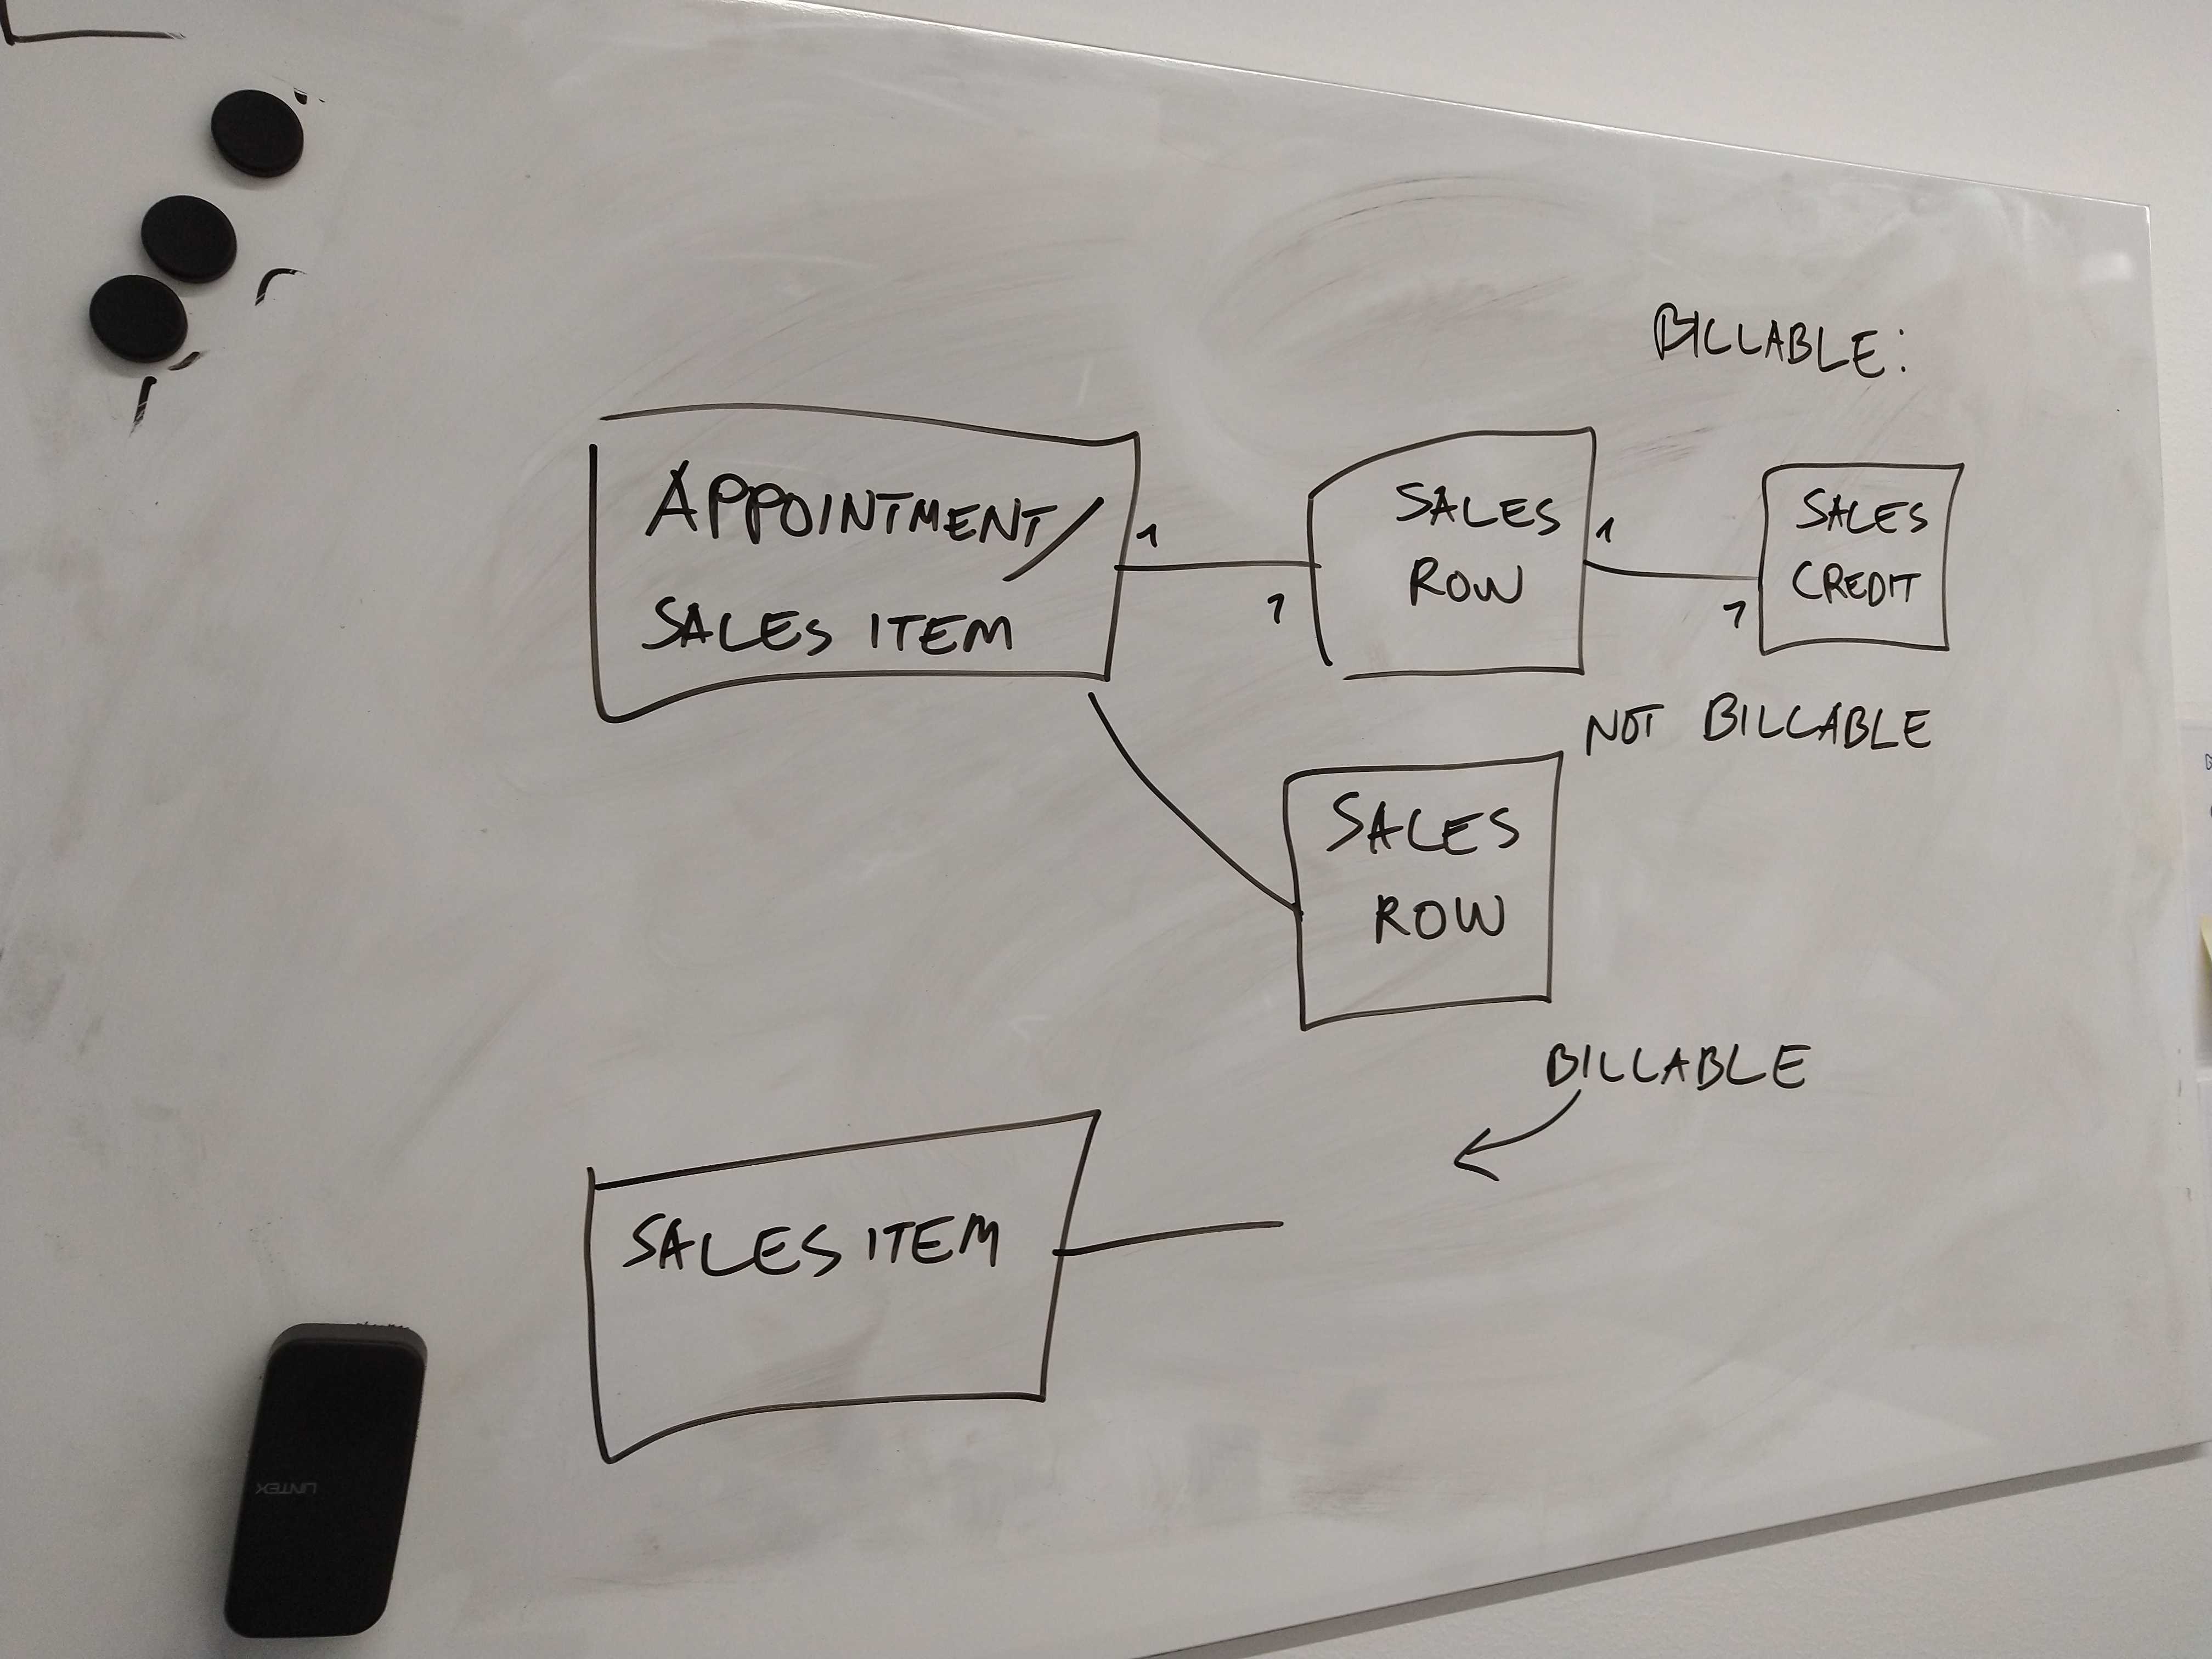 BILLABLE:
APPOINTMENT/
SALES ITEM
1
1
SALES
ROW
1
1
SALES
CREDIT
NOT BILLABLE
SALES
ROW
BILLABLE
SALES ITEM
LINTEX